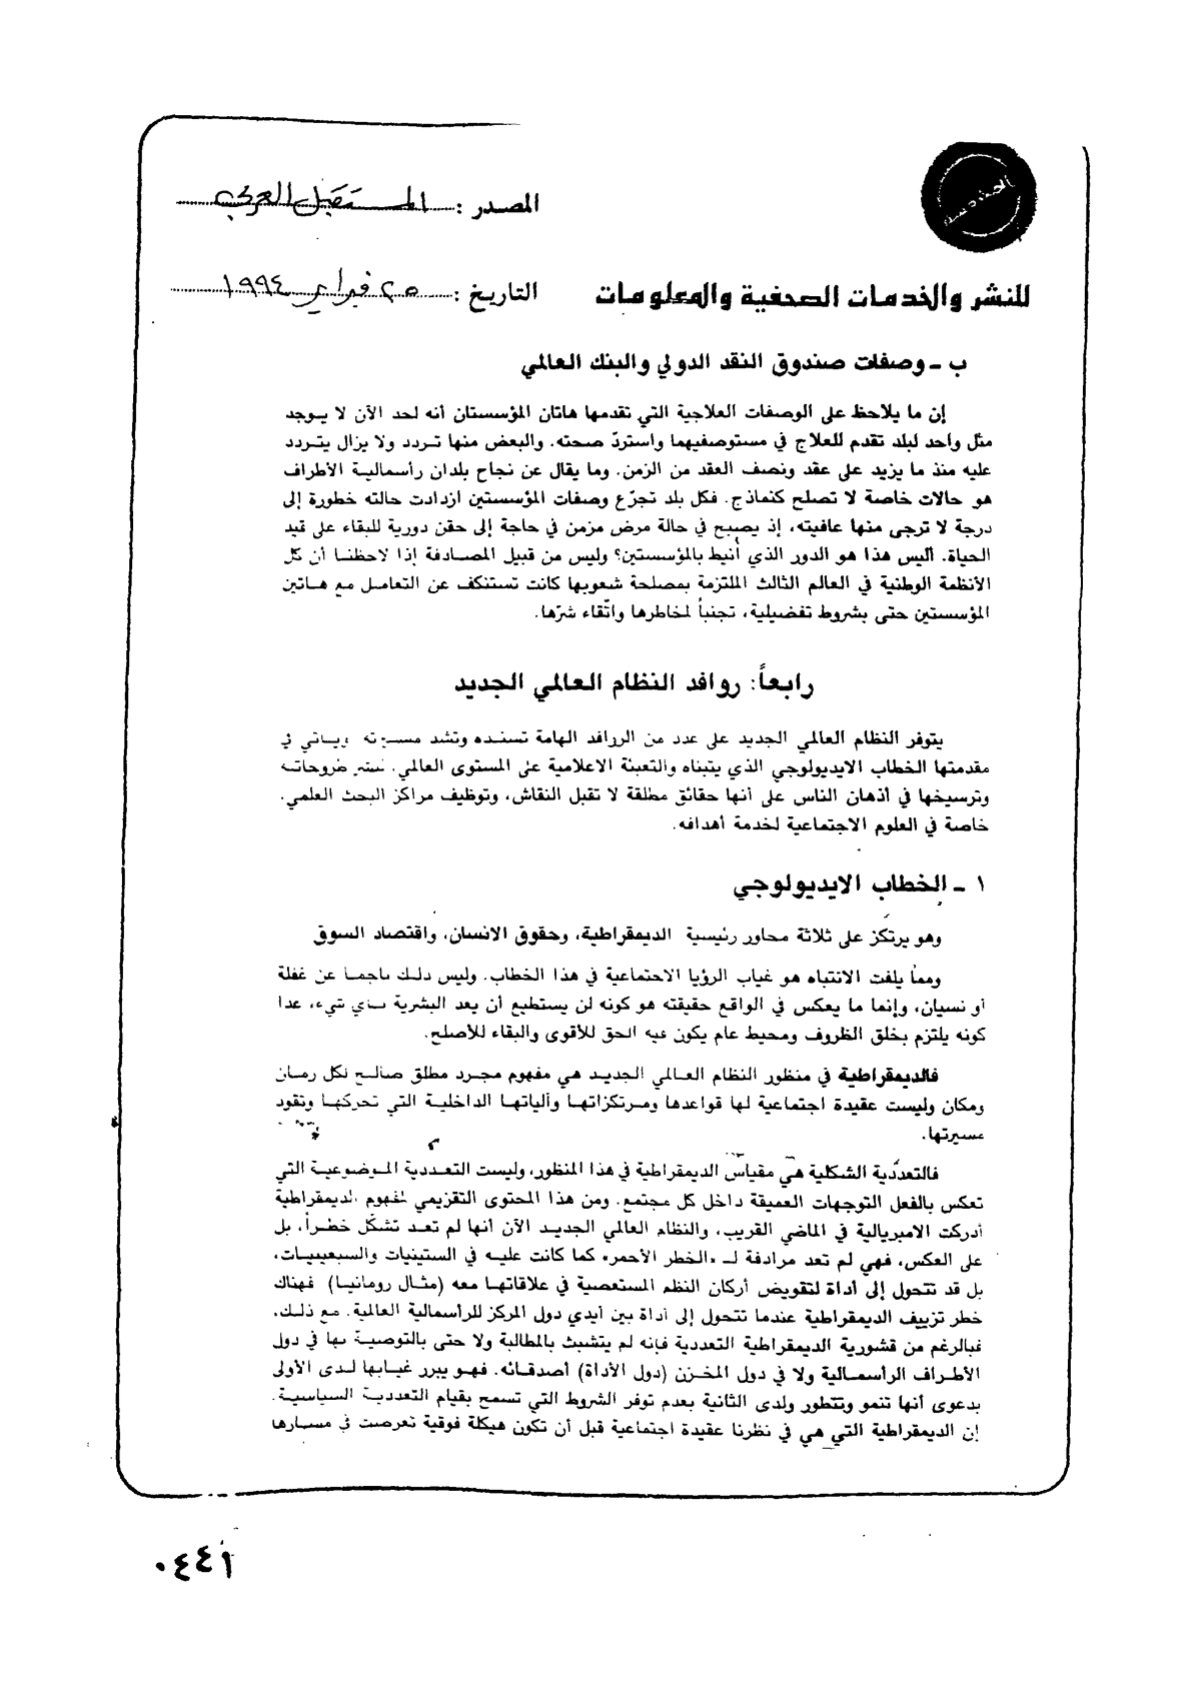 المصدر : المستقبل العربي
للنشر والخدمات الصحفية والمعلومات
التاريخ : ٢٥ فبراير ١٩٩٤
ب ـ وصفات صندوق النقد الدولي والبنك العالمي
إن ما يلاحظ على الوصفات العلاجية التي تقدمها هاتان المؤسستان أنه لحد الآن لا يوجد
مثل واحد لبلد تقدم للعلاج في مستوصفيهما واستردّ صحته. والبعض منها تردد ولا يزال يتردد
عليه منذ ما يزيد على عقد ونصف العقد من الزمن. وما يقال عن نجاح بلدان رأسمالية الأطراف
هو حالات خاصة لا تصلح كنماذج. فكل بلد تجرّع وصفات المؤسستين ازدادت حالته خطورة إلى
درجة لا ترجى منها عافيته، إذ يصبح في حالة مرض مزمن في حاجة إلى حقن دورية للبقاء على قيد
الحياة. أليس هذا هو الدور الذي أنيط بالمؤسستين؟ وليس من قبيل المصادفة إذا لاحظنا أن كل
الأنظمة الوطنية في العالم الثالث الملتزمة بمصلحة شعوبها كانت تستنكف عن التعامل مع هاتين
المؤسستين حتى بشروط تفضيلية، تجنباً لمخاطرها واتّقاء شرّها.
رابعاً: روافد النظام العالمي الجديد
يتوفر النظام العالمي الجديد على عدد من الروافد الهامة تسنده وتشد ويأتي في
مقدمتها الخطاب الايديولوجي الذي يتبناه والتعبئة الاعلامية على المستوى العالمي. طروحاته
وترسيخها في أذهان الناس على أنها حقائق مطلقة لا تقبل النقاش، وتوظيف مراكز البحث العلمي.
خاصة في العلوم الاجتماعية لخدمة أهدافه.
١ ـ الخطاب الايديولوجي
وهو يرتكز على ثلاثة محاور رئيسية الديمقراطية، وحقوق الانسان، واقتصاد السوق
ومما يلفت الانتباه هو غياب الرؤيا الاجتماعية في هذا الخطاب. وليس ذلك ناجماً عن غفلة
أو نسيان، وإنما ما يعكس في الواقع حقيقته هو كونه لن يستطيع أن يعد البشرية بأي شيء، عدا
كونه يلتزم بخلق الظروف ومحيط عام يكون فيه الحق للأقوى والبقاء للأصلح.
فالديمقراطية في منظور النظام العالمي الجديد هي مفهوم مجرد مطلق صالح لكل زمان
ومكان وليست عقيدة اجتماعية لها قواعدها ومرتكزاتها وألياتها الداخلية التي تحركها وتقود
مسيرتها.
فالتعدّدية الشكلية هي مقياس الديمقراطية في هذا المنظور، وليست التعددية الموضوعية التي
تعكس بالفعل التوجهات العميقة داخل كل مجتمع. ومن هذا المحتوى التقزيمي لمفهوم الديمقراطية
أدركت الامبريالية في الماضي القريب، والنظام العالمي الجديد الآن أنها لم تعد تشكّل خطراً، بل
على العكس، فهي لم تعد مرادفة لـ «الخطر الأحمر» كما كانت عليه في الستينيات والسبعينيات،
بل قد تتحول إلى أداة لتقويض أركان النظم المستعصية في علاقاتها معه (مثال رومانيا) فهناك
خطر تزييف الديمقراطية عندما تتحول إلى أداة بين أيدي دول المركز للرأسمالية العالمية. مع ذلك،
فبالرغم من قشورية الديمقراطية التعددية فإنه لم يتشبث بالمطالبة ولا حتى بالتوصية بها في دول
الأطراف الرأسمالية ولا في دول المخزن (دول الأداة) أصدقائه. فهو يبرر غيابها لدى الأولى
بدعوى أنها تنمو وتتطور ولدى الثانية بعدم توفر الشروط التي تسمح بقيام التعددية السياسية.
إن الديمقراطية التي هي في نظرنا عقيدة اجتماعية قبل أن تكون هيكلة فوقية تعرضت في مسارها
٠٤٤١